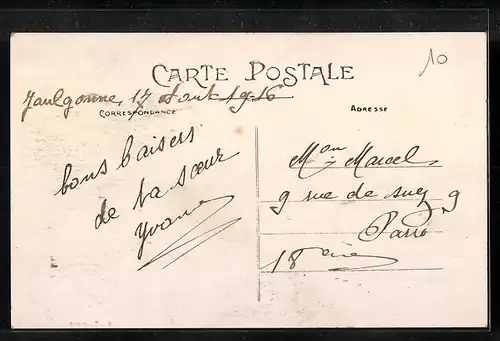 10
CARTE POSTALE
Jaulgonne, 17 Aout 1916
CORRESPONDANCE
ADRESSE
bons baisers
de ta sœur
Yvonne
Mon Marcel
9 rue de Suez 9
Paris
18ème